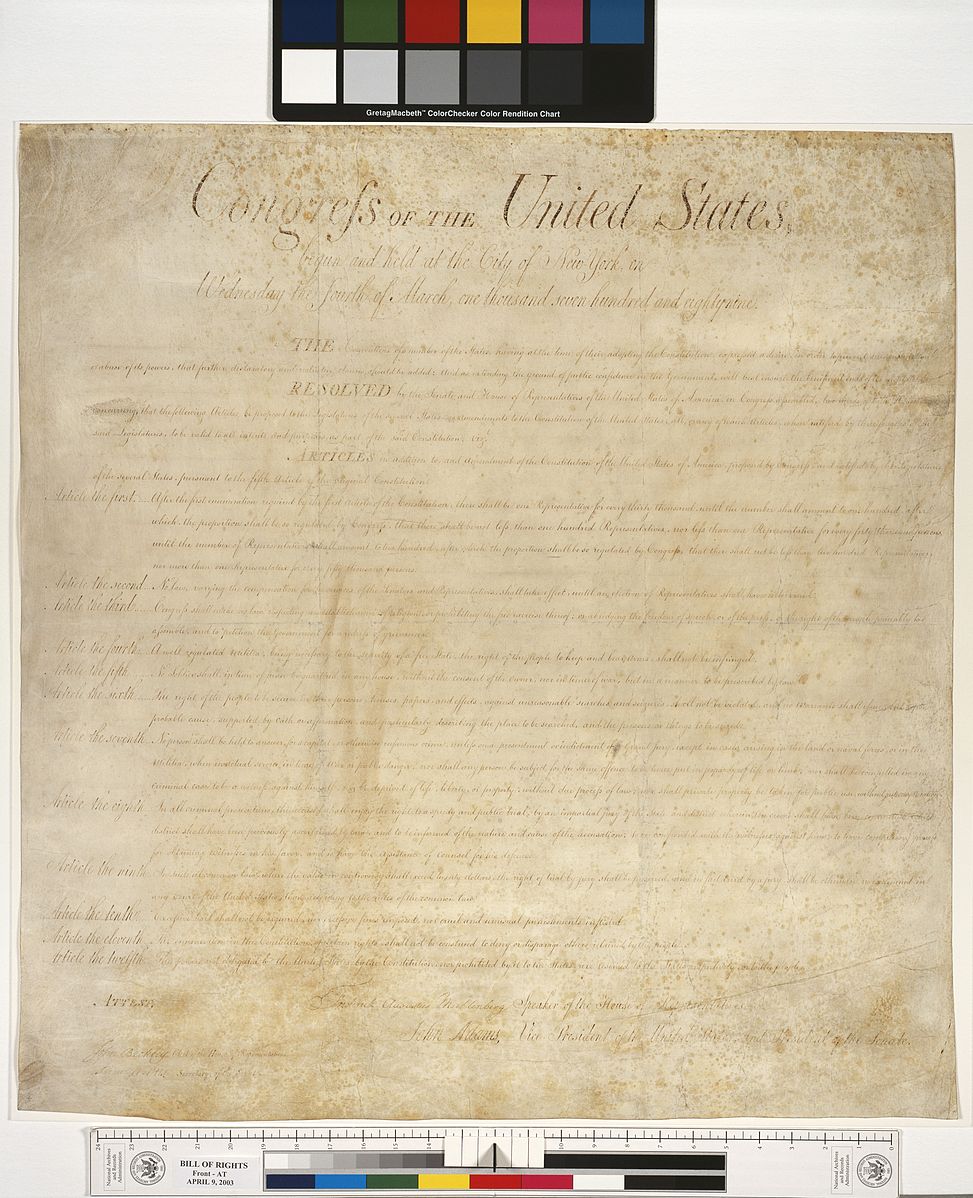 GretagMacbeth™ ColorChecker Color Rendition Chart
Congreſs OF THE United States,
begun and held at the City of New York, on
Wednesday the fourth of March, one thousand seven hundred and eightynine.
THE Conventions of a number of the States, having at the time of their adopting the Constitution, expressed a desire, in order to prevent
or abuse of its powers, that further declaratory and restrictive clauses should be added: And as extending the ground of public confidence in the Government, will best insure the beneficent ends of its
RESOLVED by the Senate and House of Representatives of the United States of America, in Congress assembled, two thirds of
concurring, that the following Articles be proposed to the Legislatures of the several States, as amendments to the Constitution of the United States, all, or any of which Articles, when ratified by three fourths of the
said Legislatures, to be valid to all intents and purposes, as part of the said Constitution; viz.
ARTICLES in addition to, and amendment of the Constitution of the United States of America, proposed by Congress, and ratified by the Legislatures
of the several States, pursuant to the fifth Article of the original Constitution.
Article the first.... After the first enumeration required by the first Article of the Constitution, there shall be one Representative for every thirty thousand, until the number shall amount to one hundred, after
which, the proportion shall be so regulated by Congress, that there shall be not less than one hundred Representatives, nor less than one Representative for every forty thousand persons,
until the number of Representatives shall amount to two hundred, after which the proportion shall be so regulated by Congress, that there shall not be less than two hundred Representatives,
nor more than one Representative for every fifty thousand persons.
Article the second... No law, varying the compensation for the services of the Senators and Representatives, shall take effect, until an election of Representatives shall have intervened.
Article the third.... Congress shall make no law respecting an establishment of religion, or prohibiting the free exercise thereof; or abridging the freedom of speech, or of the press; or the right of the people peaceably to
assemble, and to petition the Government for a redress of grievances.
Article the fourth... A well regulated militia, being necessary to the security of a free State, the right of the people to keep and bear arms, shall not be infringed.
Article the fifth.... No Soldier shall, in time of peace be quartered in any house, without the consent of the owner, nor in time of war, but in a manner to be prescribed by law.
Article the sixth.... The right of the people to be secure in their persons, houses, papers, and effects, against unreasonable searches and seizures, shall not be violated, and no Warrants shall issue, but upon
probable cause, supported by Oath or affirmation, and particularly describing the place to be searched, and the persons or things to be seized.
Article the seventh. No person shall be held to answer for a capital, or otherwise infamous crime, unless on a presentment or indictment of a Grand Jury, except in cases arising in the land or naval forces, or in the
Militia, when in actual service, in time of War or public danger; nor shall any person be subject for the same offence to be twice put in jeopardy of life or limb; nor shall be compelled in any
criminal case to be a witness against himself, nor be deprived of life, liberty, or property, without due process of law; nor shall private property be taken for public use, without just compensation.
Article the eighth. In all criminal prosecutions, the accused shall enjoy the right to a speedy and public trial, by an impartial jury of the State and district wherein the crime shall have been committed, which
district shall have been previously ascertained by law, and to be informed of the nature and cause of the accusation; to be confronted with the witnesses against him; to have compulsory process
for obtaining witnesses in his favor, and to have the assistance of Counsel for his defence.
Article the ninth. In suits at common law, where the value in controversy shall exceed twenty dollars, the right of trial by jury shall be preserved, and no fact tried by a jury, shall be otherwise re-examined in
any court of the United States, than according to the rules of the common law.
Article the tenth. Excessive bail shall not be required, nor excessive fines imposed, nor cruel and unusual punishments inflicted.
Article the eleventh. The enumeration in the Constitution, of certain rights, shall not be construed to deny or disparage others retained by the people.
Article the twelfth. The powers not delegated to the United States by the Constitution, nor prohibited by it to the States, are reserved to the States respectively, or to the people.
ATTEST,
Frederick Augustus Muhlenberg Speaker of the House of Representatives.
John Adams, Vice President of the United States, and President of the Senate.
John Beckley, Clerk of the House of Representatives.
Sam. A. Otis Secretary of the Senate.
24 23 22 21 20 19 18 17 16 15 14 10 9 8 7 6 5 4 3 2 1 0
National Archives and Records Administration
BILL OF RIGHTS
Front - AT
APRIL 9, 2003
National Archives and Records Administration